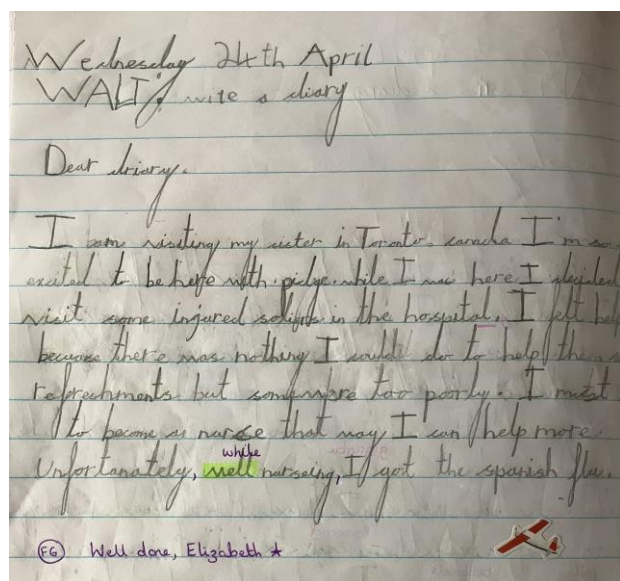 Wednesday 24th April
WALT: write a diary
Dear driary.
I am visiting my sister in Toronto canada I'm so
excited to be here with pidge. while I was here I decided
visit some ingured soldiers in the hospital. I felt
because there was nothing I could do to help them
refrechments but some were too poorly. I must
to become a narse that way I can help more.
while
Unfortanately, well narseing, I got the spanish flu.
FG Well done, Elizabeth